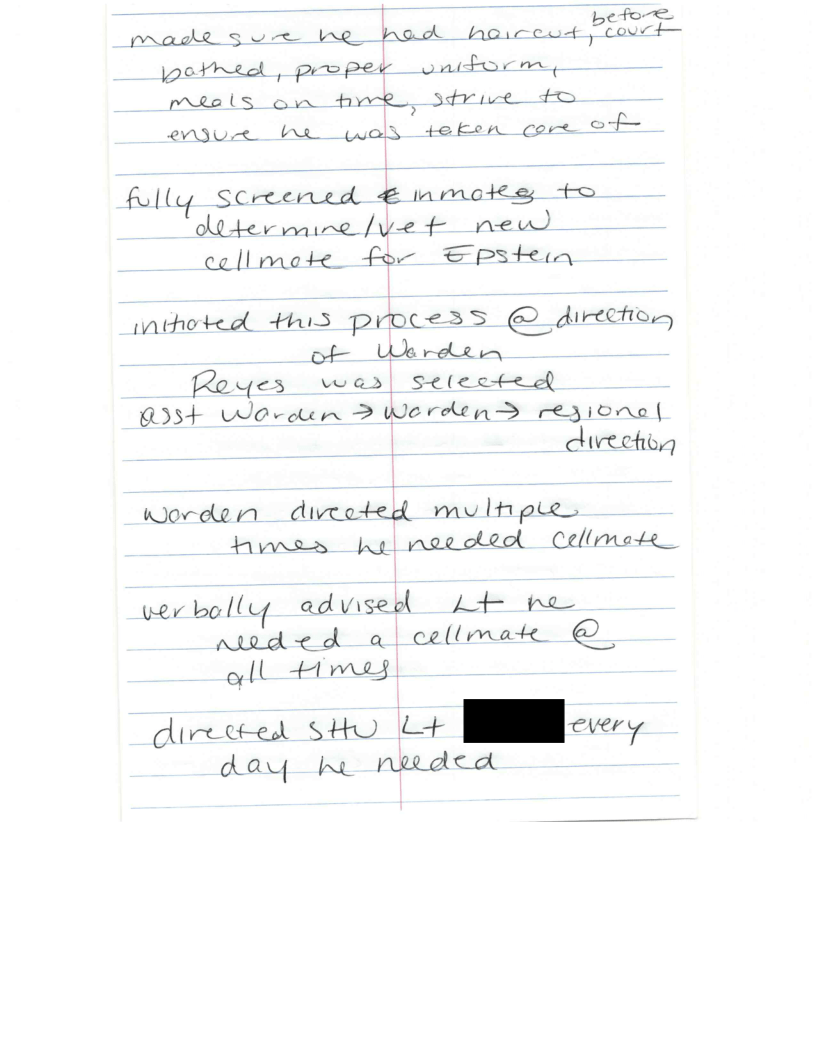 made sure he had haircut, before court
bathed, proper uniform,
meals on time, strive to
ensure he was taken care of
fully screened inmates to
determine/vet new
cellmate for Epstein
initiated this process @ direction
of Warden
Reyes was selected
asst Warden → Warden → regional
direction
Warden directed multiple
times he needed cellmate
verbally advised Lt he
needed a cellmate @
all times
directed SHU Lt every
day he needed